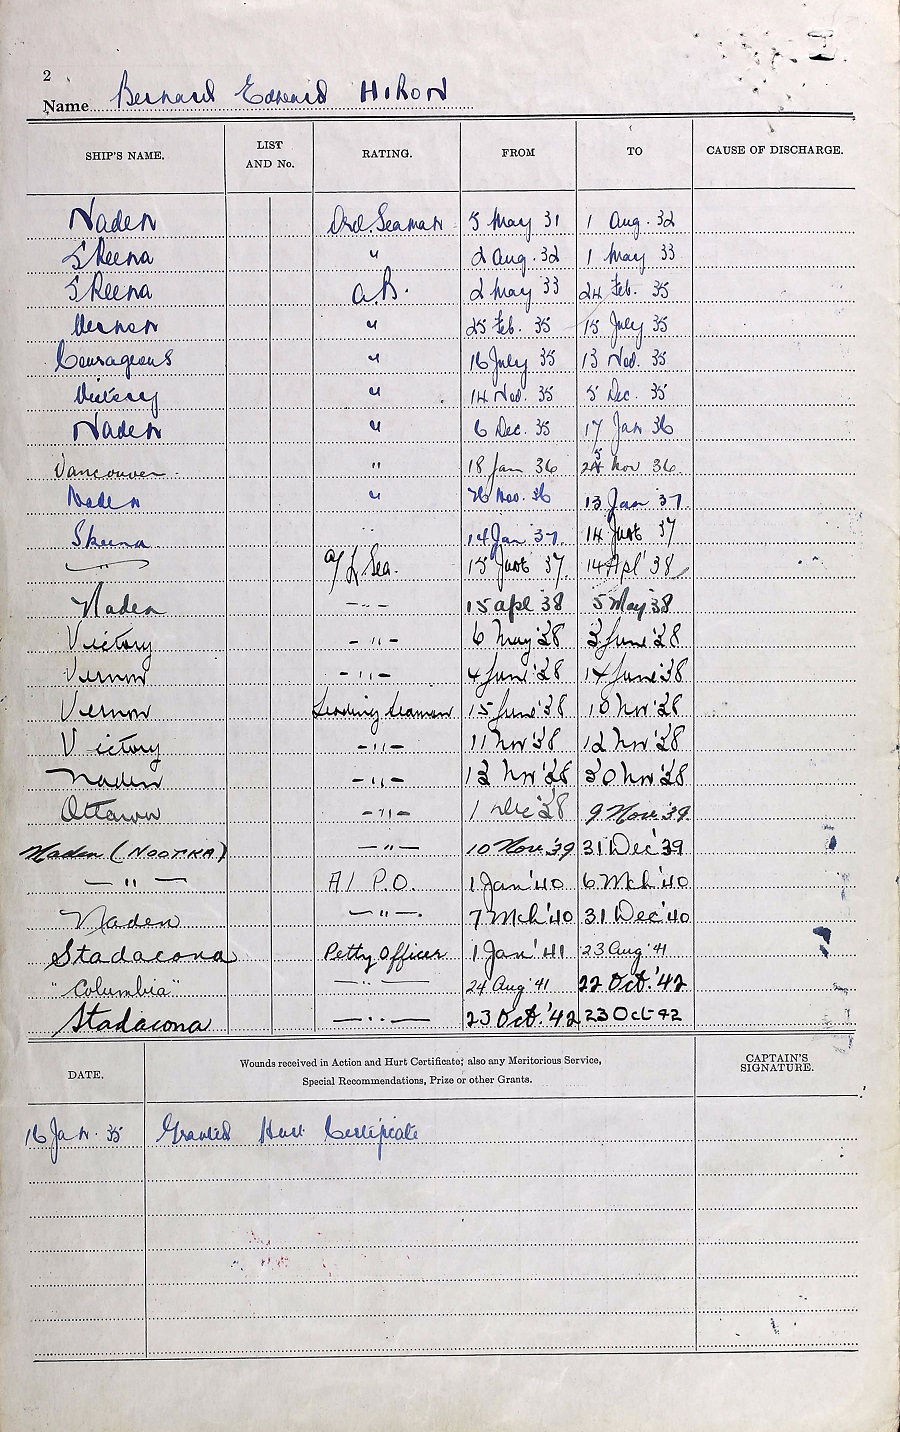 2
Name Bernard Edward HIRON
SHIP'S NAME. LIST AND No. RATING. FROM TO CAUSE OF DISCHARGE.
Naden Ord. Seaman 5 May 31 1 Aug. 32
Skeena " 2 Aug. 32 1 May 33
Skeena A.B. 2 May 33 24 Feb. 35
Vernon " 25 Feb. 35 15 July 35
Courageous " 16 July 35 13 Nov. 35
Victory " 14 Nov. 35 5 Dec. 35
Naden " 6 Dec. 35 17 Jan 36
Vancouver " 18 Jan 36 25 Nov 36
Naden " 26 Nov. 36 13 Jan 37
Skeena 14 Jan 37. 14 Sept 37
" A/L.Sea. 15 Sept 37. 14 Apl '38
Naden -"- 15 apl '38 5 May '38
Victory -"- 6 May '38 3 June '38
Vernon -"- 4 June '38 14 June '38
Vernon Leading Seaman 15 June '38 10 Nov '38
Victory -"- 11 Nov '38 12 Nov '38
Naden -"- 13 Nov '38 30 Nov '38
Ottawa -"- 1 Dec '38 9 Nov. '39
Naden (NOOTKA) -"- 10 Nov. '39 31 Dec '39
-"- A/ P.O. 1 Jan '40 6 Mch '40
Naden -"-. 7 Mch '40 31 Dec '40
Stadacona Petty Officer 1 Jan '41 23 Aug '41
"Columbia" -"- 24 Aug '41 22 Oct. '42
Stadacona -"- 23 Oct. '42 23 Oct 42
DATE. Wounds received in Action and Hurt Certificate; also any Meritorious Service, CAPTAIN'S
Special Recommendations, Prize or other Grants. SIGNATURE.
16 Jan. 35 Granted Hurt Certificate